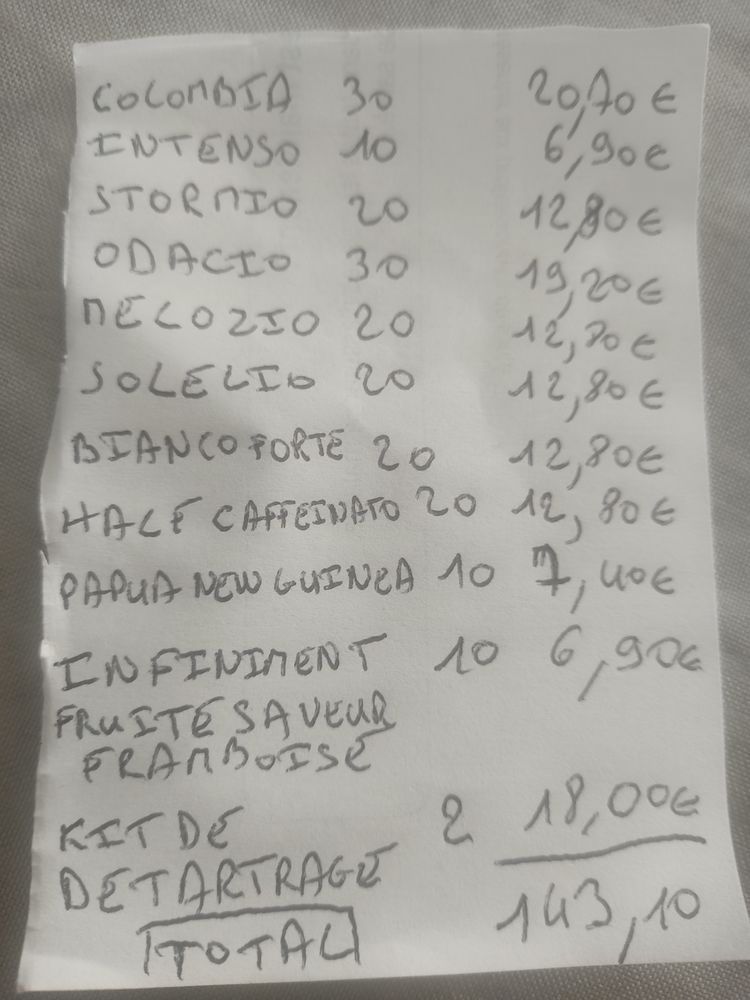 COLOMBIA 30 20,70 €
INTENSO 10 6,90€
STORMIO 20 12,80€
ODACIO 30 19,20€
MELOZIO 20 12,80€
SOLELIO 20 12,80€
BIANCO FORTE 20 12,80€
HALF CAFFEINATO 20 12,80€
PAPUA NEW GUINEA 10 7,40€
INFINIMENT 10 6,90€
FRUITÉ SAVEUR
FRAMBOISE
KIT DE 2 18,00€
DETARTRAGE
TOTAL 143,10